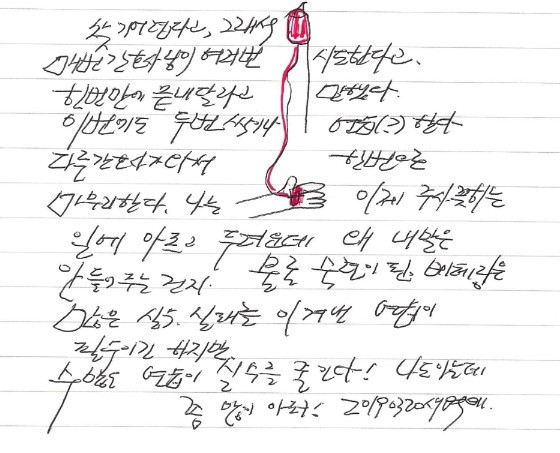 숙 기어던다고, 그래서
매번 간호사님이 여러번 시도한다고.
한번만에 끝내달라고 말했다.
이번에도 두번 연습(?) 한다
다른 간호사 와서 한번으로
마무리한다. 나는 이제 주사 꽂히는
일에 아프고 두려운데 왜 내말은
안 들어주는 건지. 물론 숙련이 된 베테랑은
많은 실수. 실패를 이겨낸 연습이
필수이긴 하지만
수많은 연습이 실수를 줄인다! 나도 아는데
좀 많이 아프다!